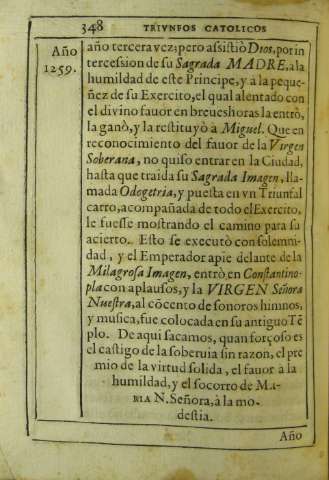 348 TRIVNFOS CATOLICOS
Año
1259.
año tercera vez; pero assistiò Dios, por in
tercession de su Sagrada MADRE, a la
humildad de este Principe, y à la peque-
ñez de su Exercito, el qual alentado con
el divino fauor en breues horas la entrò,
la ganò, y la restituyò à Miguel. Que en
reconocimiento del fauor de la Virgen
Soberana, no quiso entrar en la Ciudad,
hasta que traida su Sagrada Imagen, lla-
mada Odogetria, y puesta en vn Triunfal
carro, acompañada de todo el Exercito,
le fuesse mostrando el camino para su
acierto. Esto se executò con solemni-
dad, y el Emperador apie delante de la
Milagrosa Imagen, entrò en Constantino-
pla con aplausos, y la VIRGEN Señora
Nuestra, al cõcento de sonoros himnos,
y musica, fue colocada en su antiguo Tẽ
plo. De aqui sacamos, quan forçoso es
el castigo de la soberuia sin razon, el pre
mio de la virtud solida, el fauor à la
humildad, y el socorro de MA-
RIA N. Señora, à la mo-
destia.
Año